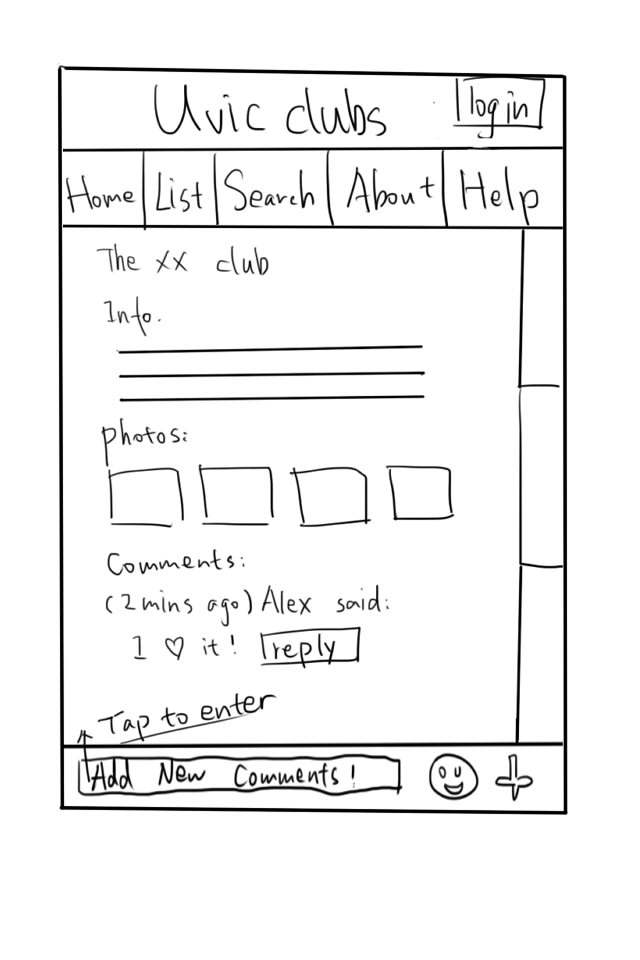 Uvic clubs
log in
Home List Search About Help
The xx club
Info.
photos:
Comments:
(2 mins ago) Alex said:
I ♡ it! reply
Tap to enter
Add New Comments!